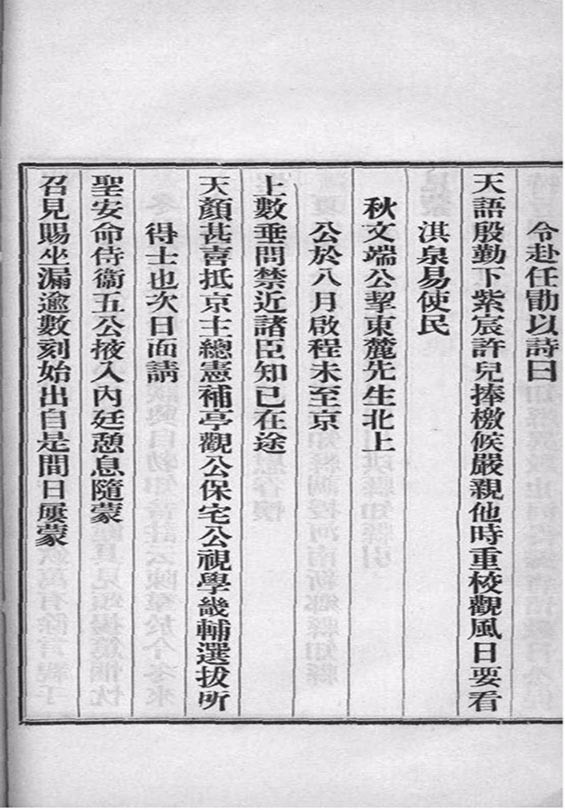 令赴任勖以詩曰
天語殷勤下紫宸許兒捧檄候嚴親他時重校觀風日要看
淇泉易使民
秋文端公挈東麓先生北上
公於八月啟程未至京
上數垂問禁近諸臣知已在途
天顏甚喜抵京主總憲補亭觀公保宅公視學畿輔選拔所
得士也次日面請
聖安命侍衞五公掖入內廷憩息隨蒙
召見賜坐漏逾數刻始出自是間日屢蒙